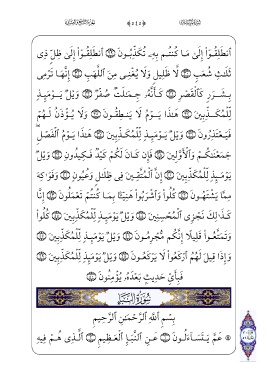 ٱنطَلِقُوٓاْ إِلَىٰ مَا كُنتُم بِهِۦ تُكَذِّبُونَ ٢٩ ٱنطَلِقُوٓاْ إِلَىٰ ظِلّٖ ذِي
ثَلَٰثِ شُعَبٖ ٣٠ لَّا ظَلِيلٖ وَلَا يُغۡنِي مِنَ ٱللَّهَبِ ٣١ إِنَّهَا تَرۡمِي
بِشَرَرٖ كَٱلۡقَصۡرِ ٣٢ كَأَنَّهُۥ جِمَٰلَتٞ صُفۡرٞ ٣٣ وَيۡلٞ يَوۡمَئِذٖ
لِّلۡمُكَذِّبِينَ ٣٤ هَٰذَا يَوۡمُ لَا يَنطِقُونَ ٣٥ وَلَا يُؤۡذَنُ لَهُمۡ
فَيَعۡتَذِرُونَ ٣٦ وَيۡلٞ يَوۡمَئِذٖ لِّلۡمُكَذِّبِينَ ٣٧ هَٰذَا يَوۡمُ ٱلۡفَصۡلِۖ
جَمَعۡنَٰكُمۡ وَٱلۡأَوَّلِينَ ٣٨ فَإِن كَانَ لَكُمۡ كَيۡدٞ فَكِيدُونِ ٣٩ وَيۡلٞ
يَوۡمَئِذٖ لِّلۡمُكَذِّبِينَ ٤٠ إِنَّ ٱلۡمُتَّقِينَ فِي ظِلَٰلٖ وَعُيُونٖ ٤١ وَفَوَٰكِهَ
مِمَّا يَشۡتَهُونَ ٤٢ كُلُواْ وَٱشۡرَبُواْ هَنِيٓـَٔۢا بِمَا كُنتُمۡ تَعۡمَلُونَ ٤٣ إِنَّا
كَذَٰلِكَ نَجۡزِي ٱلۡمُحۡسِنِينَ ٤٤ وَيۡلٞ يَوۡمَئِذٖ لِّلۡمُكَذِّبِينَ ٤٥ كُلُواْ
وَتَمَتَّعُواْ قَلِيلًا إِنَّكُم مُّجۡرِمُونَ ٤٦ وَيۡلٞ يَوۡمَئِذٖ لِّلۡمُكَذِّبِينَ ٤٧
وَإِذَا قِيلَ لَهُمُ ٱرۡكَعُواْ لَا يَرۡكَعُونَ ٤٨ وَيۡلٞ يَوۡمَئِذٖ لِّلۡمُكَذِّبِينَ ٤٩
فَبِأَيِّ حَدِيثِۭ بَعۡدَهُۥ يُؤۡمِنُونَ ٥٠
سُورَةُ النَّبَإِ
بِسۡمِ ٱللَّهِ ٱلرَّحۡمَٰنِ ٱلرَّحِيمِ
عَمَّ يَتَسَآءَلُونَ ١ عَنِ ٱلنَّبَإِ ٱلۡعَظِيمِ ٢ ٱلَّذِي هُمۡ فِيهِ